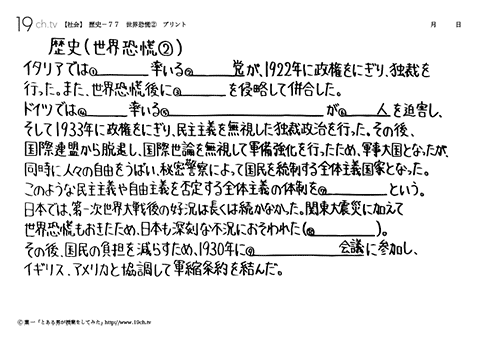 19ch.tv 【社会】 歴史－77 世界恐慌② プリント 月 日
歴史(世界恐慌②)
イタリアでは①______率いる②______党が、1922年に政権をにぎり、独裁を
行った。また、世界恐慌後に③______を侵略して併合した。
ドイツでは④______率いる⑤______が⑥______人を迫害し、
そして1933年に政権をにぎり、民主主義を無視した独裁政治を行った。その後、
国際連盟から脱退し、国際世論を無視して軍備強化を行ったため、軍事大国となったが、
同時に人々の自由をうばい、秘密警察によって国民を統制する全体主義国家となった。
このような民主主義や自由主義を否定する全体主義の体制を⑦______という。
日本では、第一次世界大戦後の好況は長くは続かなかった。関東大震災に加えて
世界恐慌もおきたため、日本も深刻な不況におそわれた(⑧______)。
その後、国民の負担を減らすため、1930年に⑨______会議に参加し、
イギリス、アメリカと協調して軍縮条約を結んだ。
© 葉一「とある男が授業をしてみた」http://www.19ch.tv